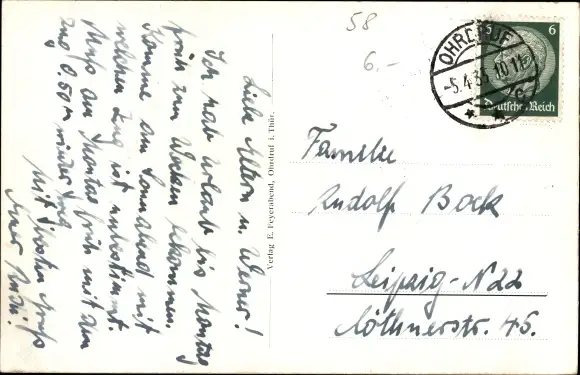 58
6.-
OHRDRUF
-5.4.3
10-11
6
Deutsches Reich
Liebe Eltern u. Werner!
Ich hab Urlaub bis Montag
früh zum Wecken bekommen.
Komme am Sonnabend mit
welchem Zug ist unbestimmt.
Muß am Montag früh mit dem
Zug 0.50 wieder weg
Mit Gruß
Euer
Verlag E. Feyerabend, Ohrdruf i. Thür.
Familie
Rudolf Bock
Leipzig-N22
Köthnerstr. 45.